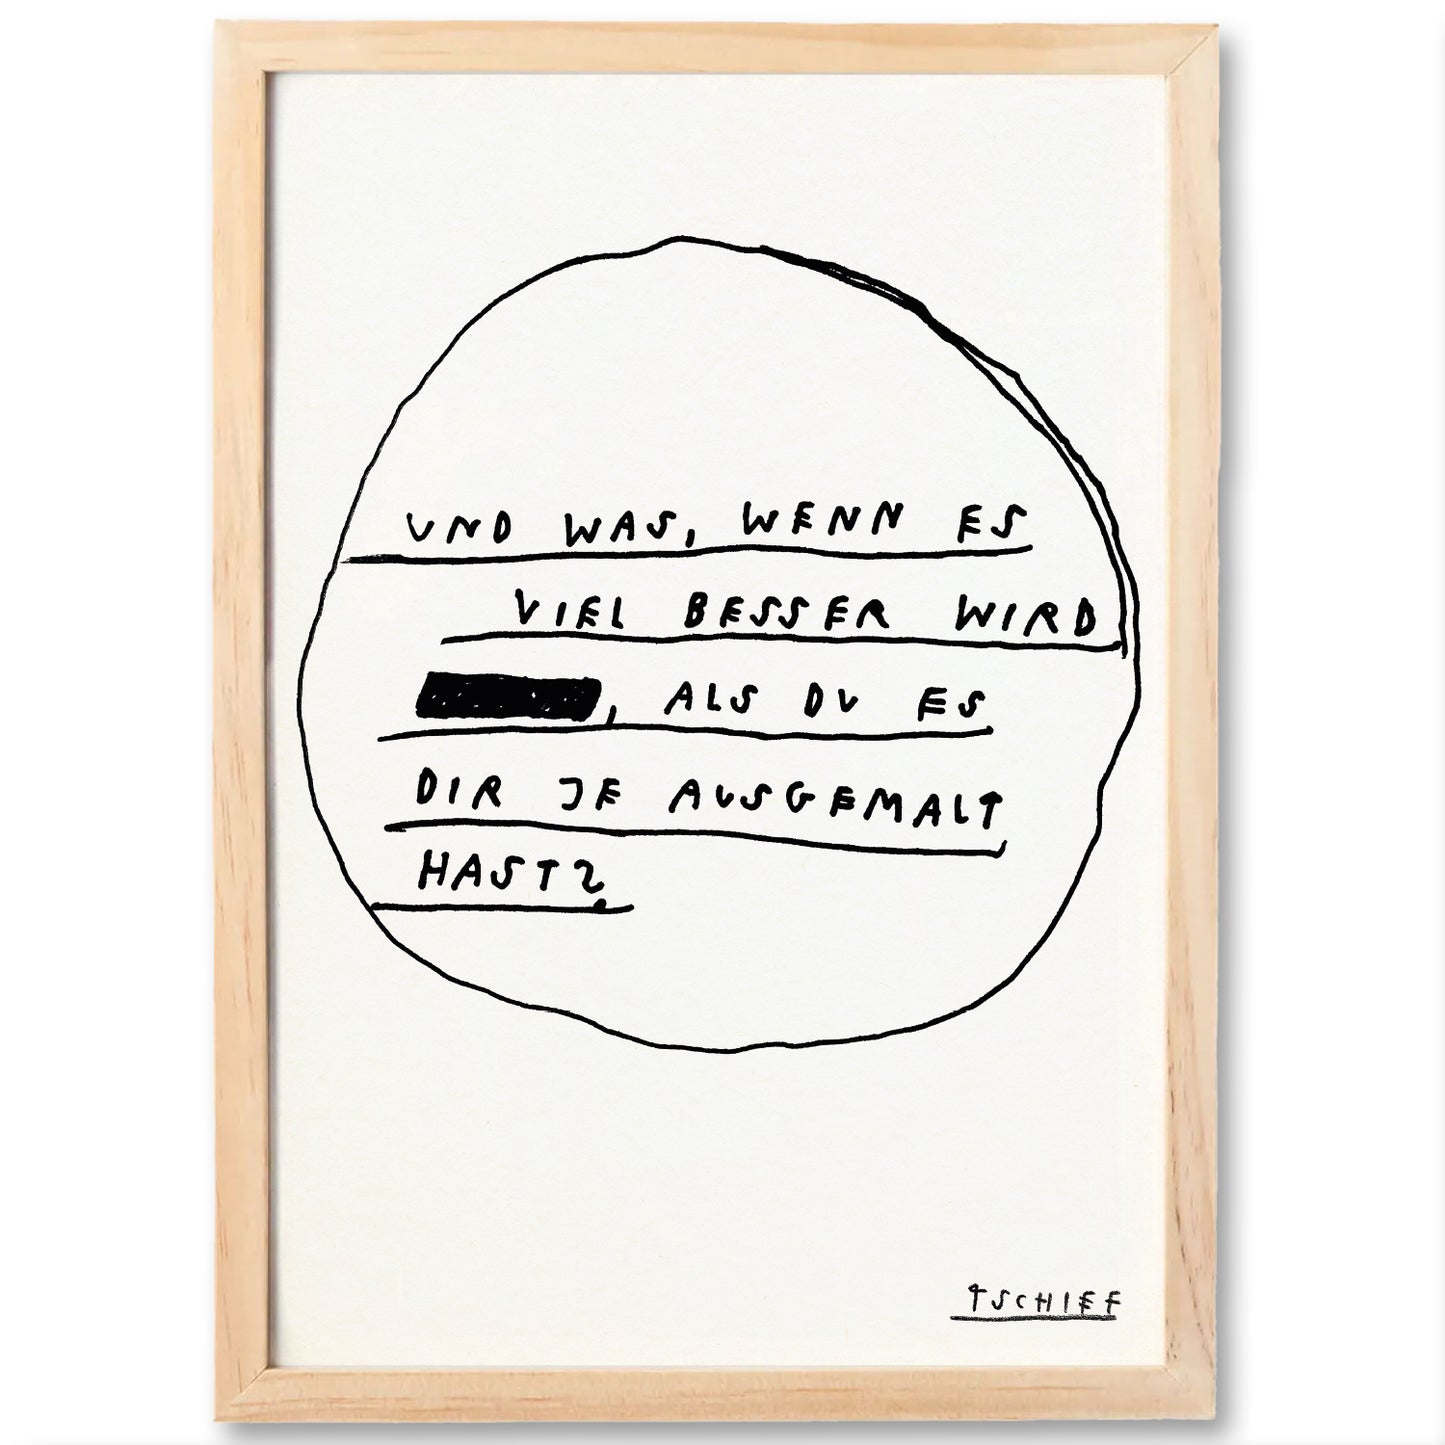 UND WAS, WENN ES
VIEL BESSER WIRD
, ALS DU ES
DIR JE AUSGEMALT
HAST?
TSCHIEF